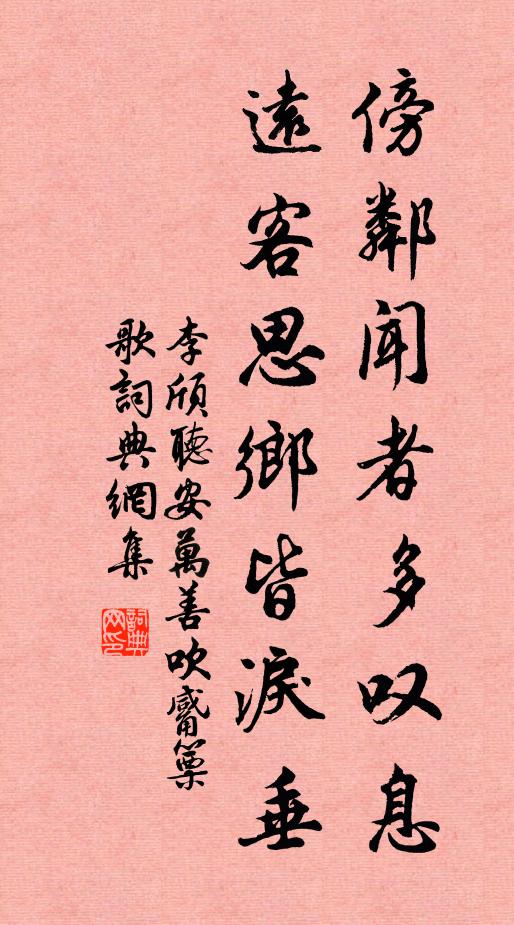 傍鄰聞者多叹息
遠客思鄉皆淚垂
李頎聽安萬善吹觱篥
歌詞典網集
詞典
网印